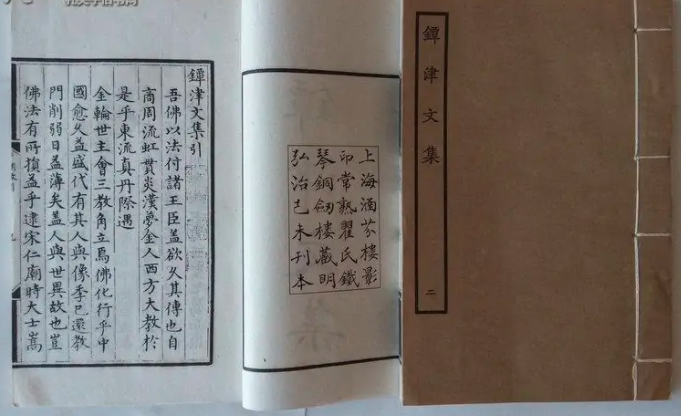 鐔津文集
二
上海涵芬樓影
印常熟瞿氏鐵
琴銅劒樓藏明
弘治己未刊本
鐔津文集引
吾佛以法付諸王臣蓋欲久其傳也自
商周流虹貫炎漢夢金人西方大教於
是乎東流真丹際遇
金輪世主會三教角立焉佛化行乎中
國愈久益盛代有其人與像季已還教
門削弱日益薄矣蓋人與世異故也豈
佛法有所損益乎逮宋仁廟時大士嵩